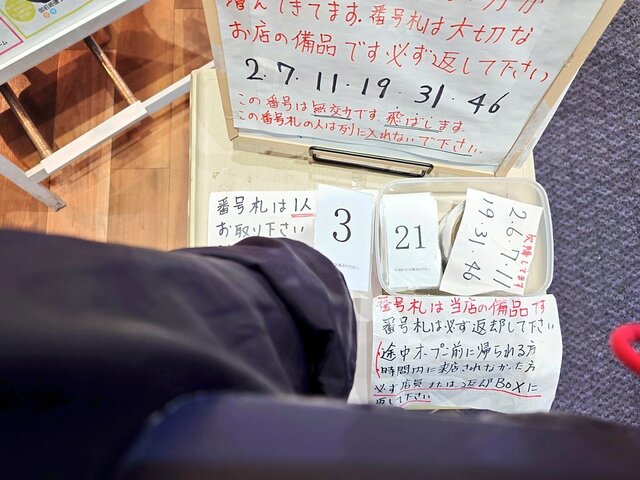 増えてきてます。番号札は大切な
お店の備品です必ず返して下さい
2.7.11.19.31.46
この番号は無効力です。飛ばします。
この番号札の人は列に入れないで下さい。
番号札は1人
お取り下さい
3
21
2.6.7.11
19.31.46
番号札は当店の備品です
番号札は必ず返却して下さい
途中オープン前に帰られる方
時間内に来店されなかった方
必ず店員または返却BOXに
返して下さい